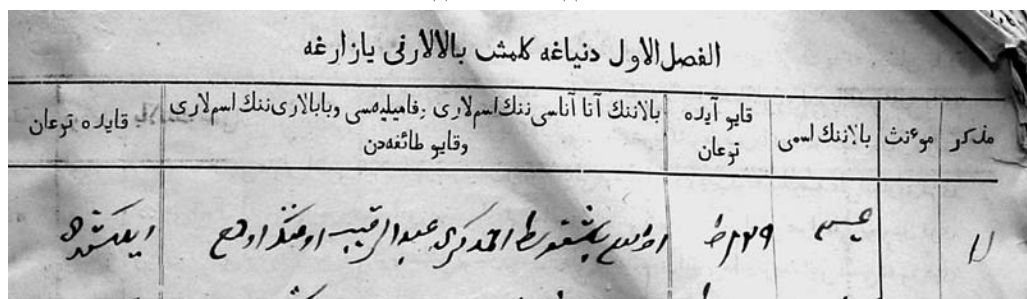 الفصل الاول دنياغه كلمش بالالارنى يازارغه
مذكر
موءنث
بالاننك اسمى
قايو آيده توغان
بالاننك آتا آناسى ننك اسملارى , فاميليه‌سى وبابالارى‌ننك اسم لارى
وقايو طائفه‌دن
قايده توغان
عيسى
باشقورط احمد كرى عبدالرقيب اوغلندا